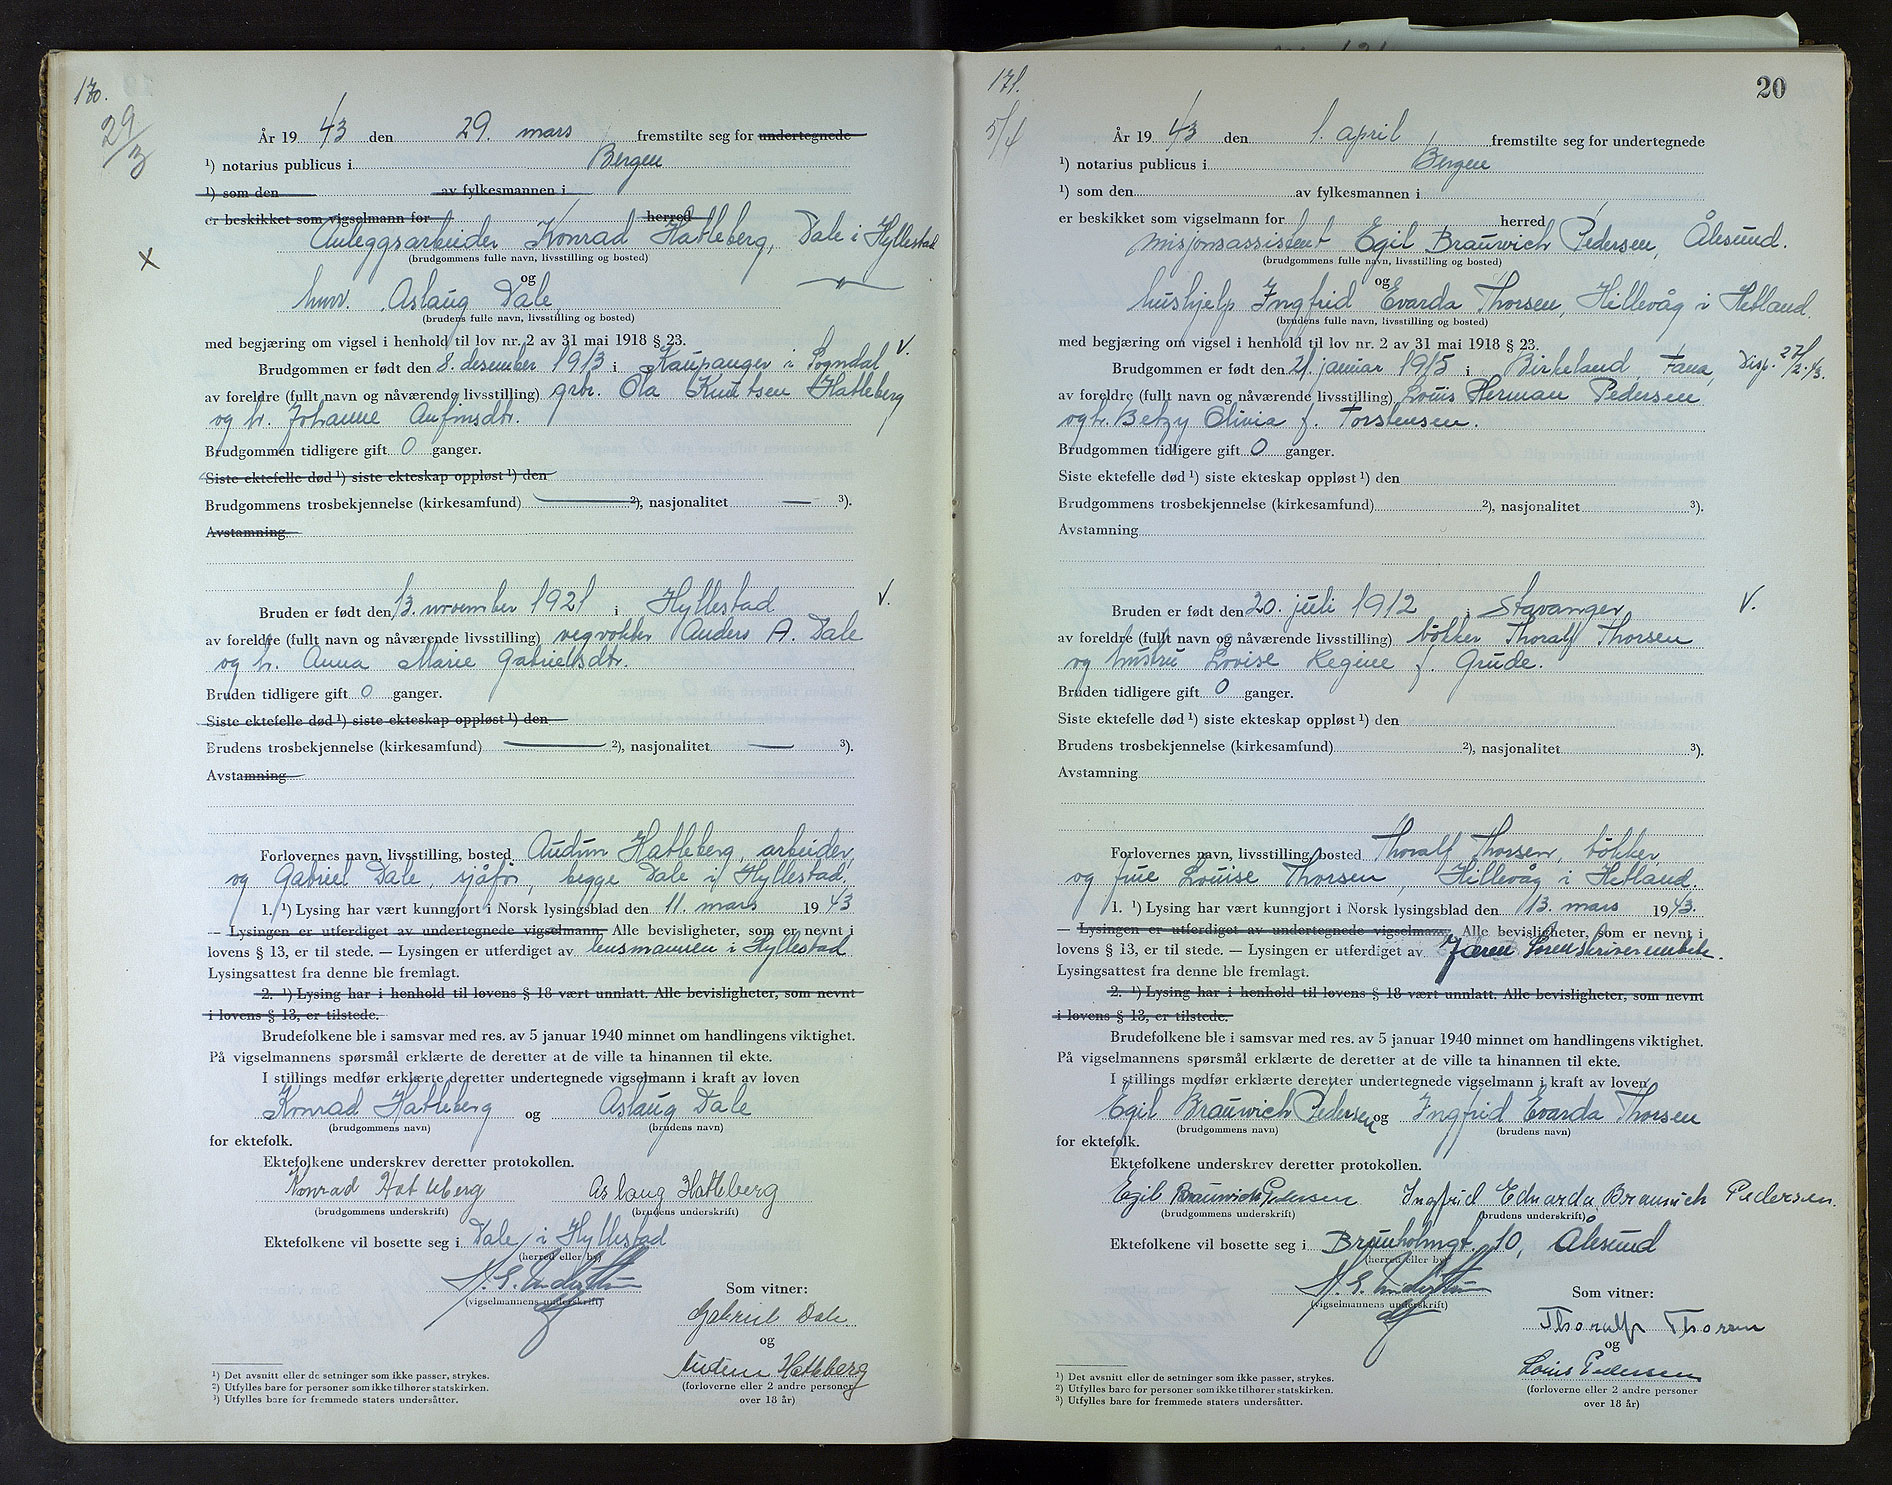 170.
29/3
År 1943 den 29. mars fremstilte seg for undertegnede
¹) notarius publicus i Bergen
¹) som den av fylkesmannen i
er beskikket som vigselmann for herred
Anleggsarbeider Konrad Hatleberg, Dale i Hyllestad
(brudgommens fulle navn, livsstilling og bosted)
x
og
hmv. Aslaug Dale —"—
(brudens fulle navn, livsstilling og bosted)
med begjæring om vigsel i henhold til lov nr. 2 av 31 mai 1918 § 23.
Brudgommen er født den 8. desember 1913 i Kaupanger i Sogndal v.
av foreldre (fullt navn og nåværende livsstilling) gbr. Ola Knutsen Hatleberg
og h. Johanne Anfinsdtr.
Brudgommen tidligere gift 0 ganger.
Siste ektefelle død ¹) siste ekteskap oppløst ¹) den
Brudgommens trosbekjennelse (kirkesamfund) — ²), nasjonalitet — ³).
Avstamning
Bruden er født den 13. november 1921 i Hyllestad v.
av foreldre (fullt navn og nåværende livsstilling) vegvokter Anders A. Dale
og h. Anna Marie Gabrielsdtr.
Bruden tidligere gift 0 ganger.
Siste ektefelle død ¹) siste ekteskap oppløst ¹) den
Brudens trosbekjennelse (kirkesamfund) — ²), nasjonalitet — ³).
Avstamning
Forlovernes navn, livsstilling, bosted Audun Hatleberg, arbeider,
og Gabriel Dale, sjåfør, begge Dale i Hyllestad.
1. ¹) Lysing har vært kunngjort i Norsk lysingsblad den 11. mars 1943
— Lysingen er utferdiget av undertegnede vigselmann. Alle bevisligheter, som er nevnt i
lovens § 13, er til stede. — Lysingen er utferdiget av lensmannen i Hyllestad
Lysingsattest fra denne ble fremlagt.
2. ¹) Lysing har i henhold til lovens § 18 vært unnlatt. Alle bevisligheter, som nevnt
i lovens § 13, er tilstede.
Brudefolkene ble i samsvar med res. av 5 januar 1940 minnet om handlingens viktighet.
På vigselmannens spørsmål erklærte de deretter at de ville ta hinannen til ekte.
I stillings medfør erklærte deretter undertegnede vigselmann i kraft av loven
Konrad Hatleberg og Aslaug Dale
(brudgommens navn) (brudens navn)
for ektefolk.
Ektefolkene underskrev deretter protokollen.
Konrad Hatleberg Aslaug Hatleberg
(brudgommens underskrift) (brudens underskrift)
Ektefolkene vil bosette seg i Dale i Hyllestad
(herred eller by)
(vigselmannens underskrift)
Som vitner:
Gabriel Dale.
og
Audun Hatleberg
(forloverne eller 2 andre personer
over 18 år)
¹) Det avsnitt eller de setninger som ikke passer, strykes.
²) Utfylles bare for personer som ikke tilhører statskirken.
³) Utfylles bare for fremmede staters undersåtter.
171.
20
5/4
År 1943 den 1. april fremstilte seg for undertegnede
¹) notarius publicus i Bergen
¹) som den av fylkesmannen i
er beskikket som vigselmann for herred
misjonsassistent Egil Brauwich Pedersen, Ålesund.
(brudgommens fulle navn, livsstilling og bosted)
og
hushjelp Ingfrid Evarda Thorsen, Hillevåg i Hetland.
(brudens fulle navn, livsstilling og bosted)
med begjæring om vigsel i henhold til lov nr. 2 av 31 mai 1918 § 23.
Brudgommen er født den 21. januar 1915 i Birkeland, Fana, Disp. 27/2.43.
av foreldre (fullt navn og nåværende livsstilling) Louis Herman Pedersen
og h. Betzy Olivia f. Torstensen.
Brudgommen tidligere gift 0 ganger.
Siste ektefelle død ¹) siste ekteskap oppløst ¹) den
Brudgommens trosbekjennelse (kirkesamfund) ²), nasjonalitet ³).
Avstamning
Bruden er født den 20. juli 1912 i Stavanger v.
av foreldre (fullt navn og nåværende livsstilling) bøkker Thoralf Thorsen
og hustru Lovise Regine f. Grude.
Bruden tidligere gift 0 ganger.
Siste ektefelle død ¹) siste ekteskap oppløst ¹) den
Brudens trosbekjennelse (kirkesamfund) ²), nasjonalitet ³).
Avstamning
Forlovernes navn, livsstilling, bosted Thoralf Thorsen, bøkker
og frue Louise Thorsen, Hillevåg i Hetland.
1. ¹) Lysing har vært kunngjort i Norsk lysingsblad den 13. mars 1943.
— Lysingen er utferdiget av undertegnede vigselmann. Alle bevisligheter, som er nevnt i
lovens § 13, er til stede. — Lysingen er utferdiget av Jæren Sorenskriverembete.
Lysingsattest fra denne ble fremlagt.
2. ¹) Lysing har i henhold til lovens § 18 vært unnlatt. Alle bevisligheter, som nevnt
i lovens § 13, er tilstede.
Brudefolkene ble i samsvar med res. av 5 januar 1940 minnet om handlingens viktighet.
På vigselmannens spørsmål erklærte de deretter at de ville ta hinannen til ekte.
I stillings medfør erklærte deretter undertegnede vigselmann i kraft av loven
Egil Brauwich Pedersen og Ingfrid Evarda Thorsen
(brudgommens navn) (brudens navn)
for ektefolk.
Ektefolkene underskrev deretter protokollen.
Egil Brauwich Pedersen Ingfrid Edvarda Brauwich Pedersen.
(brudgommens underskrift) (brudens underskrift)
Ektefolkene vil bosette seg i Brunholmgt. 10, Ålesund
(herred eller by)
(vigselmannens underskrift)
Som vitner:
Thoralf Thorsen
og
Louis Pedersen
(forloverne eller 2 andre personer
over 18 år)
¹) Det avsnitt eller de setninger som ikke passer, strykes.
²) Utfylles bare for personer som ikke tilhører statskirken.
³) Utfylles bare for fremmede staters undersåtter.